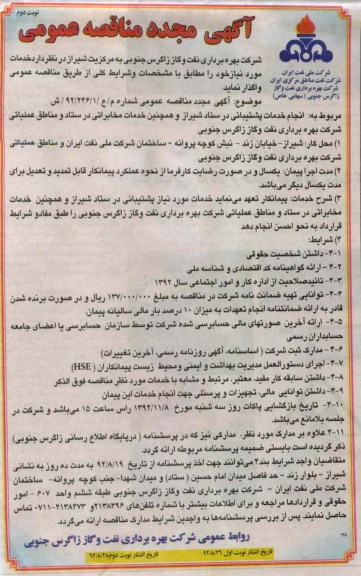 نوبت دوم
آگهی مجدد مناقصه عمومی
شرکت ملی نفت ایران
شرکت نفت مناطق مرکزی ایران
شرکت بهره برداری نفت وگاز
زاگرس جنوبی (سهامی خاص)
شرکت بهره برداری نفت وگاز زاگرس جنوبی به مرکزیت شیراز در نظر دارد خدمات
مورد نیاز خود را مطابق با مشخصات وشرایط کلی از طریق مناقصه عمومی
واگذار نماید.
موضوع: آگهی مجدد مناقصه عمومی شماره م/ع /۹۲/۲۴۶/۱ ش
مربوط به: انجام خدمات پشتیبانی در ستاد شیراز و همچنین خدمات مخابراتی در ستاد و مناطق عملیاتی
شرکت بهره برداری نفت وگاز زاگرس جنوبی
۱) محل کار: شیراز- خیابان زند - نبش کوچه پروانه - ساختمان شرکت ملی نفت ایران و مناطق عملیاتی
شرکت بهره برداری نفت وگاز زاگرس جنوبی
۲) مدت اجرا پیمان: یکسال و در صورت رضایت کارفرما از نحوه عملکرد پیمانکار قابل تمدید و تعدیل برای
مدت یکسال دیگر می‌باشد.
۳) شرح خدمات: پیمانکار تعهد می‌نماید خدمات مورد نیاز پشتیبانی در ستاد شیراز و همچنین خدمات
مخابراتی در ستاد و مناطق عملیاتی شرکت بهره برداری نفت وگاز زاگرس جنوبی را طبق مفادو شرایط
قرارداد به نحو احسن انجام دهد
۴) شرایط:
۴-۱- داشتن شخصیت حقوقی
۴-۲- ارائه گواهینامه کد اقتصادی و شناسه ملی
۴-۳- تائیدصلاحیت از اداره کار و امور اجتماعی سال ۱۳۹۲
۴-۴- توانایی تهیه ضمانت نامه شرکت در مناقصه به مبلغ ۱۳۷/۰۰۰/۰۰۰ ریال و در صورت برنده شدن
قادر به ارائه ضمانتنامه انجام تعهدات به میزان ۱۰ درصد بار مالی سالیانه پیمان
۴-۵- ارائه آخرین صورتهای مالی حسابرسی شده شرکت توسط سازمان حسابرسی یا اعضای جامعه
حسابداران رسمی
۴-۶- مدارک ثبت شرکت ( اساسنامه، آگهی روزنامه رسمی، آخرین تغییرات)
۴-۷- اجرای دستورالعمل مدیریت بهداشت و ایمنی ومحیط زیست پیمانکاران (HSE)
۴-۸- داشتن سابقه کار مفید، معتبر، مرتبط و مشابه با خدمات مورد نظر مناقصه فوق الذکر
۴-۹- داشتن توانایی مالی، تجهیزات و پرسنلی جهت انجام خدمات این پیمان
۴-۱۰- تاریخ بازگشایی پاکات روز سه شنبه مورخ ۱۳۹۲/۱۱/۸ راس ساعت ۱۵ می‌باشد و شرکت در
جلسه بلامانع می‌باشد.
۴-۱۱- علاوه بر مدارک مورد نظر، مدارکی نیز که در پرسشنامه (درپایگاه اطلاع رسانی زاگرس جنوبی)
ذکر گردیده است بایستی ضمیمه پرسشنامه مربوطه ارائه گردد.
متقاضیان واجد شرایط بند۴ می‌توانند جهت اخذ پرسشنامه از تاریخ ۹۲/۸/۱۹ به مدت ده روز به نشانی
شیراز - بلوار زند - حد فاصل میدان امام حسین ( ستاد) و میدان شهدا- جنب کوچه پروانه- ساختمان
شرکت ملی نفت ایران - شرکت بهره برداری نفت وگاز زاگرس جنوبی طبقه ششم واحد ۶۰۷ - امور
حقوقی و قراردادها مراجعه و برای اطلاعات بیشتر با شماره تلفن‌های ۲۱۳۸۳۹۶و ۲۱۳۸۴۷۳-۰۷۱۱ تماس
حاصل نمایند. پس از بررسی پرسشنامه‌ها به واجدین شرایط مدارک مناقصه ارائه می‌گردد.
روابط عمومی شرکت بهره برداری نفت وگاز زاگرس جنوبی
تاریخ انتشار نوبت اول ۹۲/۸/۲۶
تاریخ انتشار نوبت دوم ۹۲/۸/۲۸